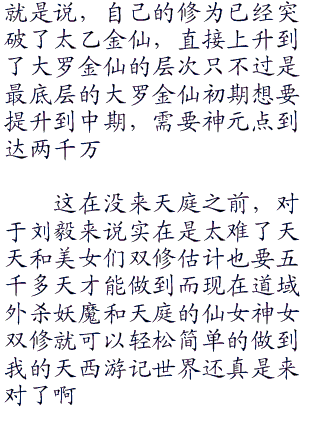 就是说，自己的修为已经突
破了太乙金仙，直接上升到
了大罗金仙的层次只不过是
最底层的大罗金仙初期想要
提升到中期，需要神元点到
达两千万
这在没来天庭之前，对
于刘毅来说实在是太难了天
天和美女们双修估计也要五
千多天才能做到而现在道域
外杀妖魔和天庭的仙女神女
双修就可以轻松简单的做到
我的天西游记世界还真是来
对了啊